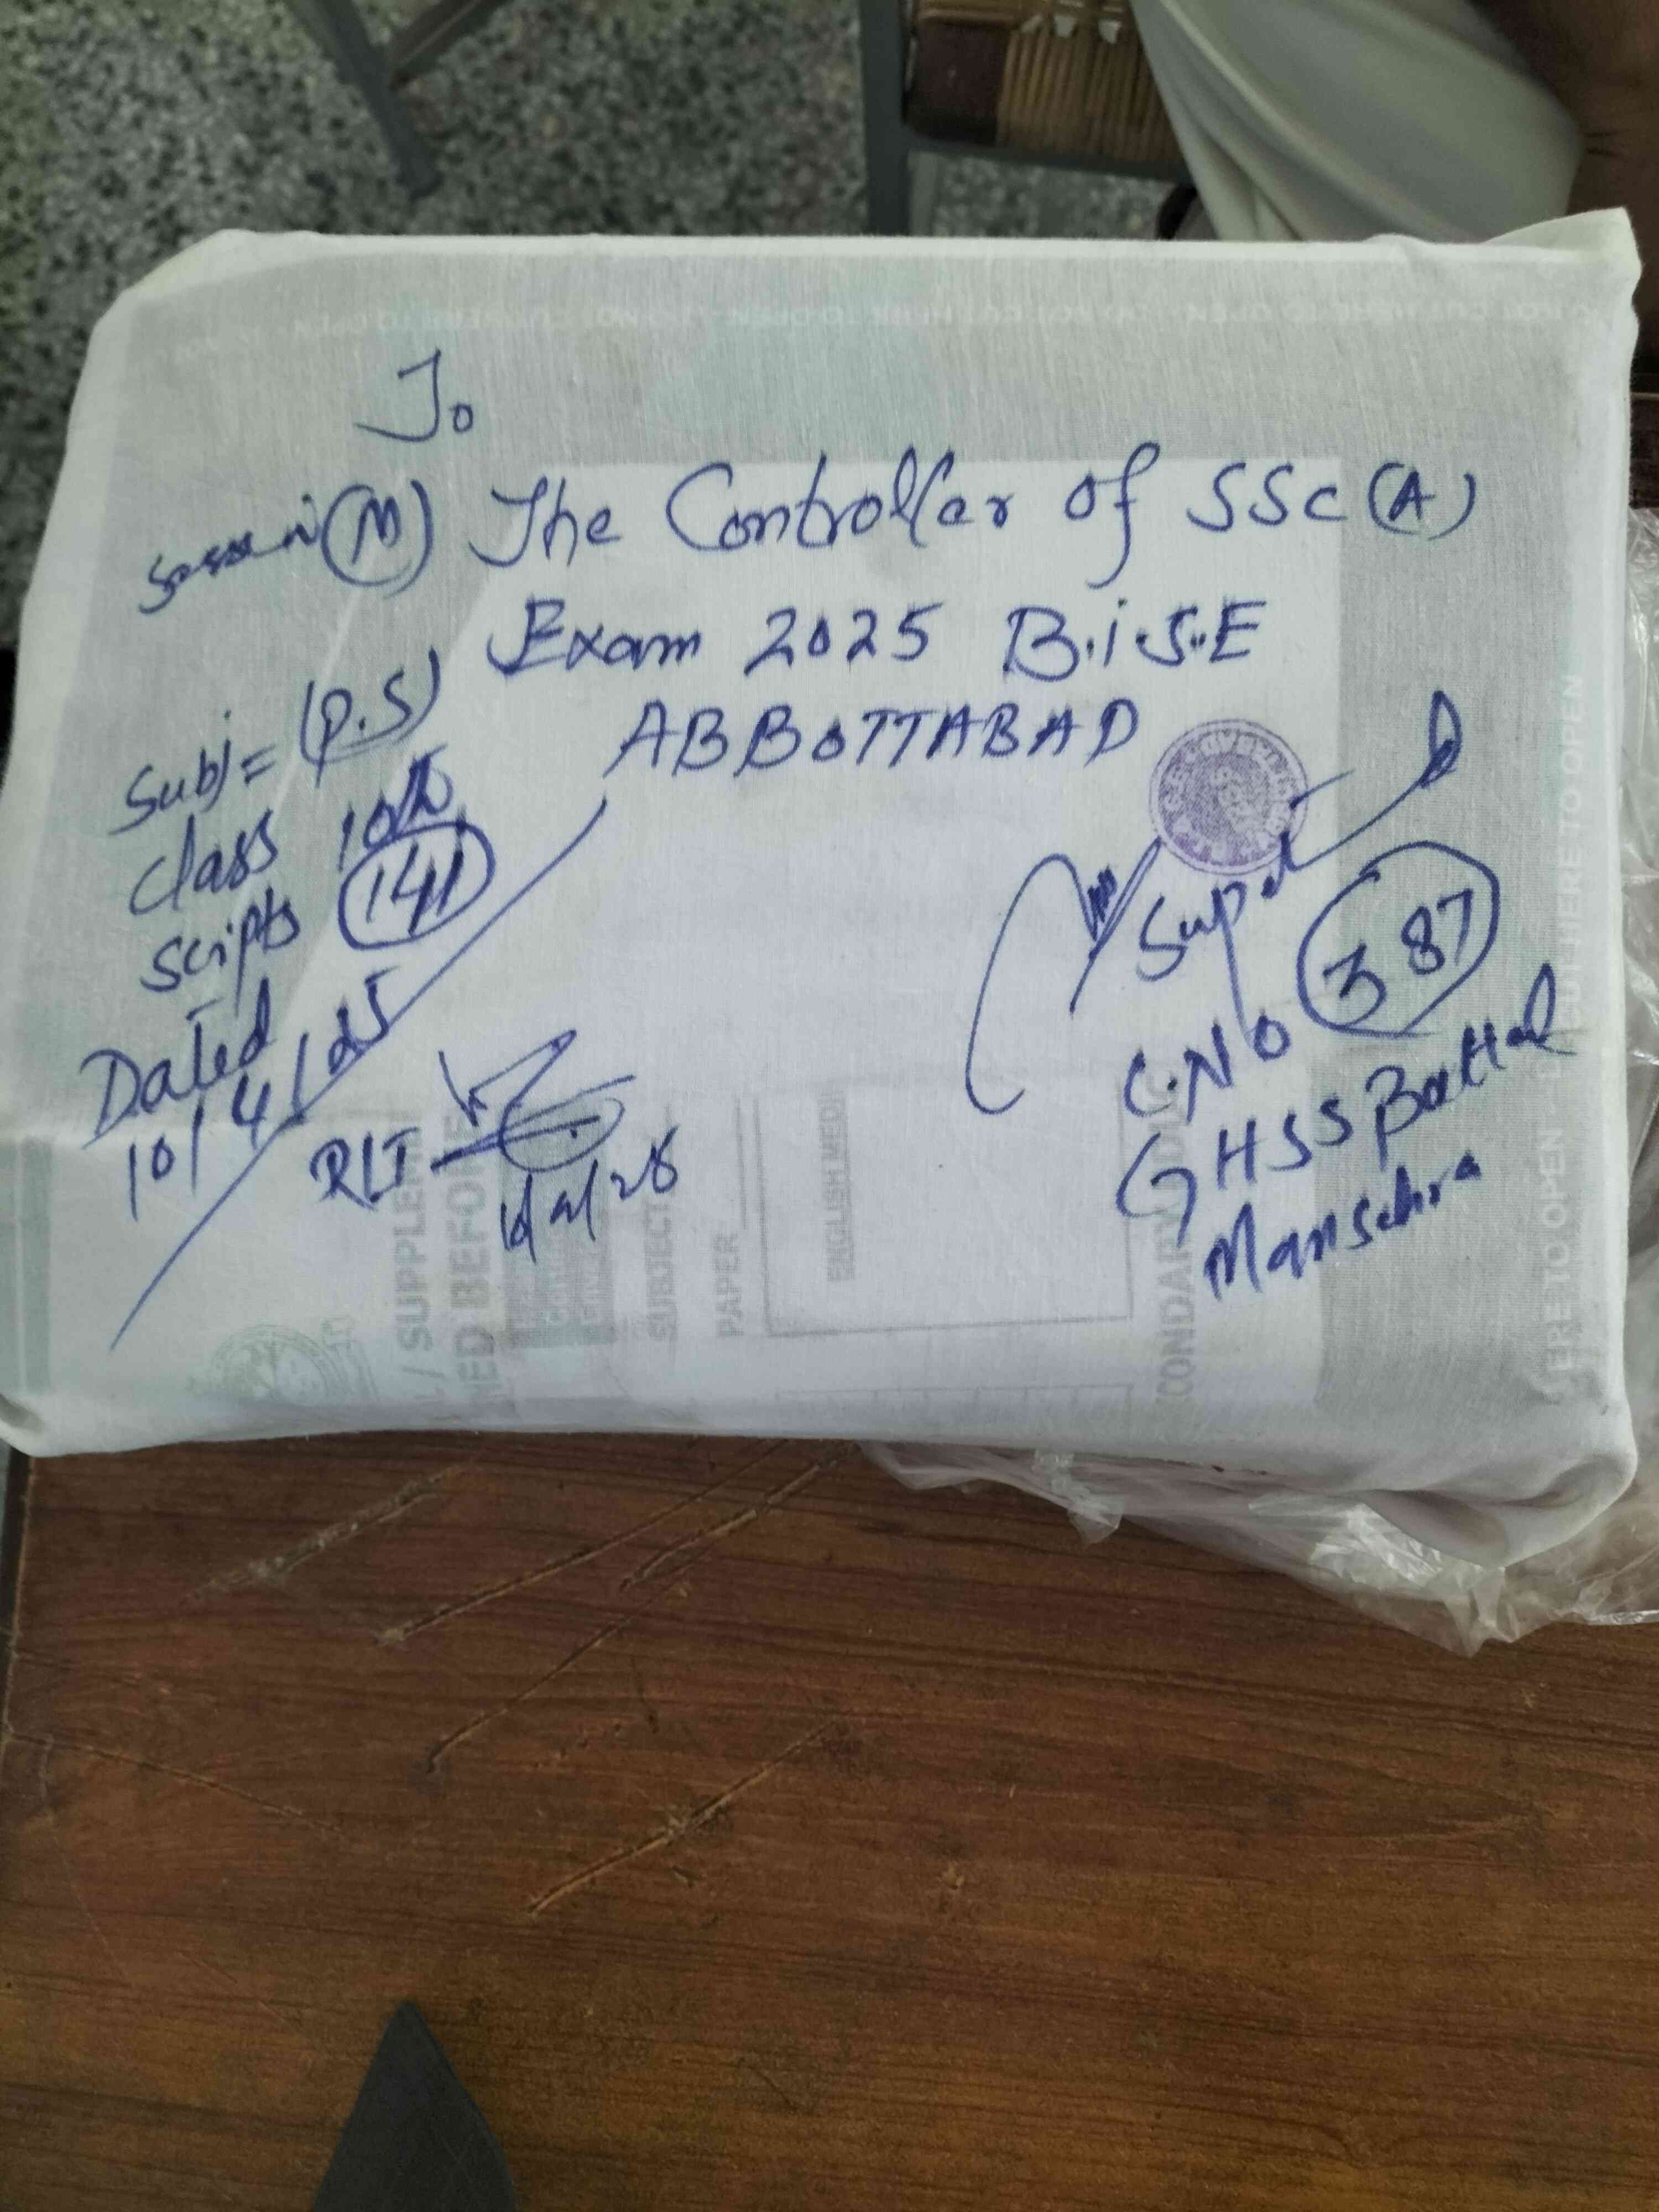 To
The Controller of SSC (A)
Exam 2025 B.I.S.E
ABBOTTABAD
(M)
Subj = (P.S)
Class 10th
Scipts 141
Dated
10/4/25
RLT
Supdt
C.NO 387
GHSS Battal
Mansehra
/ SUPPLEM
NED BEFORE
SUBJECT
PAPER
ENGLISH MEDIU
CONDARY
ERE TO OPEN
HERE TO OPEN